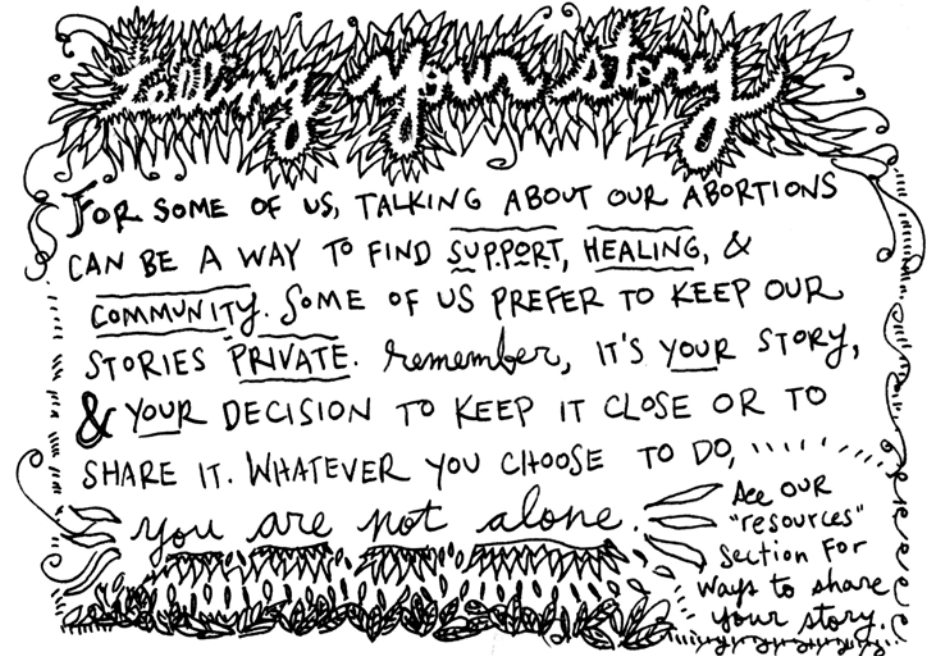 telling your story
FOR SOME OF US, TALKING ABOUT OUR ABORTIONS
CAN BE A WAY TO FIND SUPPORT, HEALING, &
COMMUNITY. SOME OF US PREFER TO KEEP OUR
STORIES PRIVATE. remember, IT'S YOUR STORY,
& YOUR DECISION TO KEEP IT CLOSE OR TO
SHARE IT. WHATEVER YOU CHOOSE TO DO,
you are not alone.
See OUR
"resources"
Section FOR
ways to share
your story.